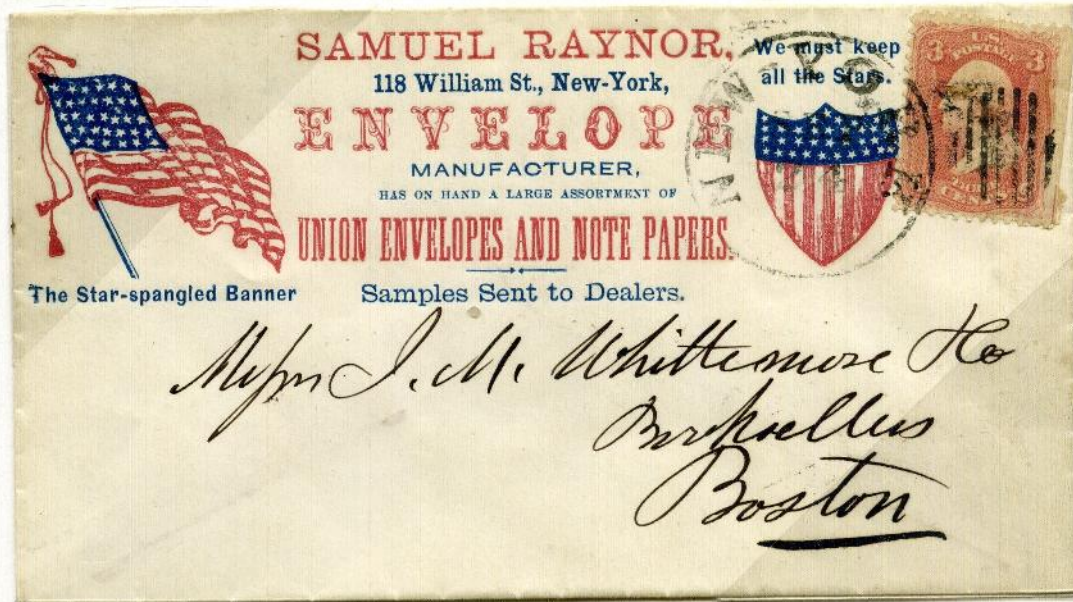 SAMUEL RAYNOR,
118 William St., New-York,
ENVELOPE
MANUFACTURER,
HAS ON HAND A LARGE ASSORTMENT OF
UNION ENVELOPES AND NOTE PAPERS.
Samples Sent to Dealers.
The Star-spangled Banner
We must keep
all the Stars.
NEW-YORK
3 U.S. 3
POSTAGE
CENTS
Messrs J. M. Whittemore & Co
Booksellers
Boston